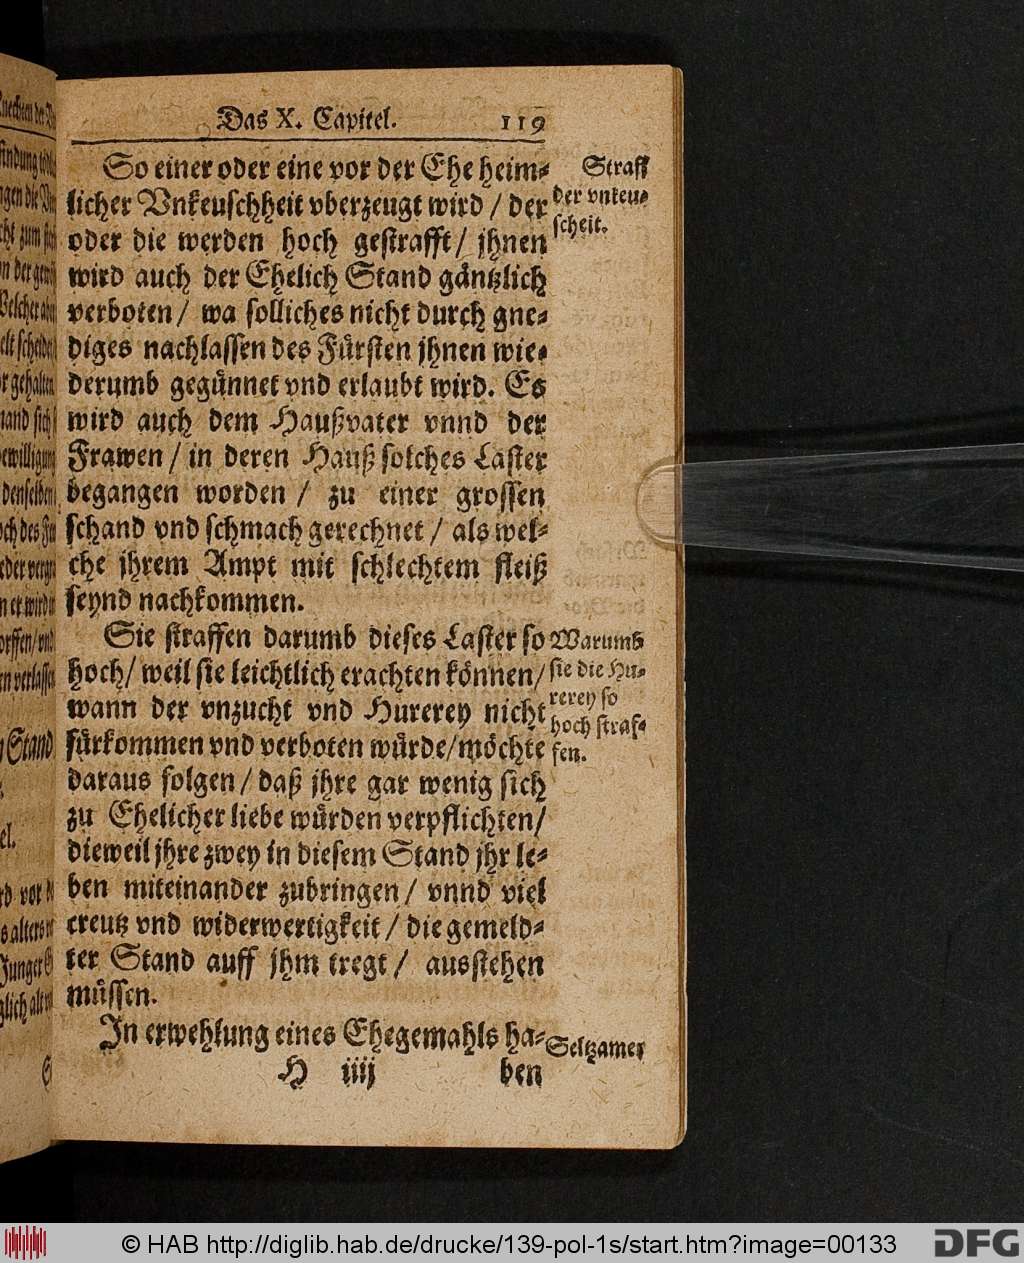 Das X. Capitel. 119
So einer oder eine vor der Ehe heim-
licher Vnkeuschheit vberzeugt wird / der
oder die werden hoch gestrafft / jhnen
wird auch der Ehelich Stand gäntzlich
verboten / wa solliches nicht durch gne-
diges nachlassen des Fürsten jhnen wie-
derumb gegünnet vnd erlaubt wird. Es
wird auch dem Haußvater vnnd der
Frawen / in deren Hauß solches Laster
begangen worden / zu einer grossen
schand vnd schmach gerechnet / als wel-
che jhrem Ampt mit schlechtem fleiß
seynd nachkommen.
Straff
der vnkeu-
scheit.
Sie straffen darumb dieses Laster so
hoch / weil sie leichtlich erachten können /
wann der vnzucht vnd Hurerey nicht
fürkommen vnd verboten würde / möchte
daraus folgen / daß jhre gar wenig sich
zu Ehelicher liebe würden verpflichten /
dieweil jhre zwey in diesem Stand jhr le-
ben miteinander zubringen / vnnd viel
creutz vnd widerwertigkeit / die gemeld-
ter Stand auff jhm tregt / ausstehen
müssen.
Warumb
sie die Hu-
rerey so
hoch straf-
fen.
In erwehlung eines Ehegemahls ha-
Seltzamer
H iiij ben
© HAB http://diglib.hab.de/drucke/139-pol-1s/start.htm?image=00133
DFG